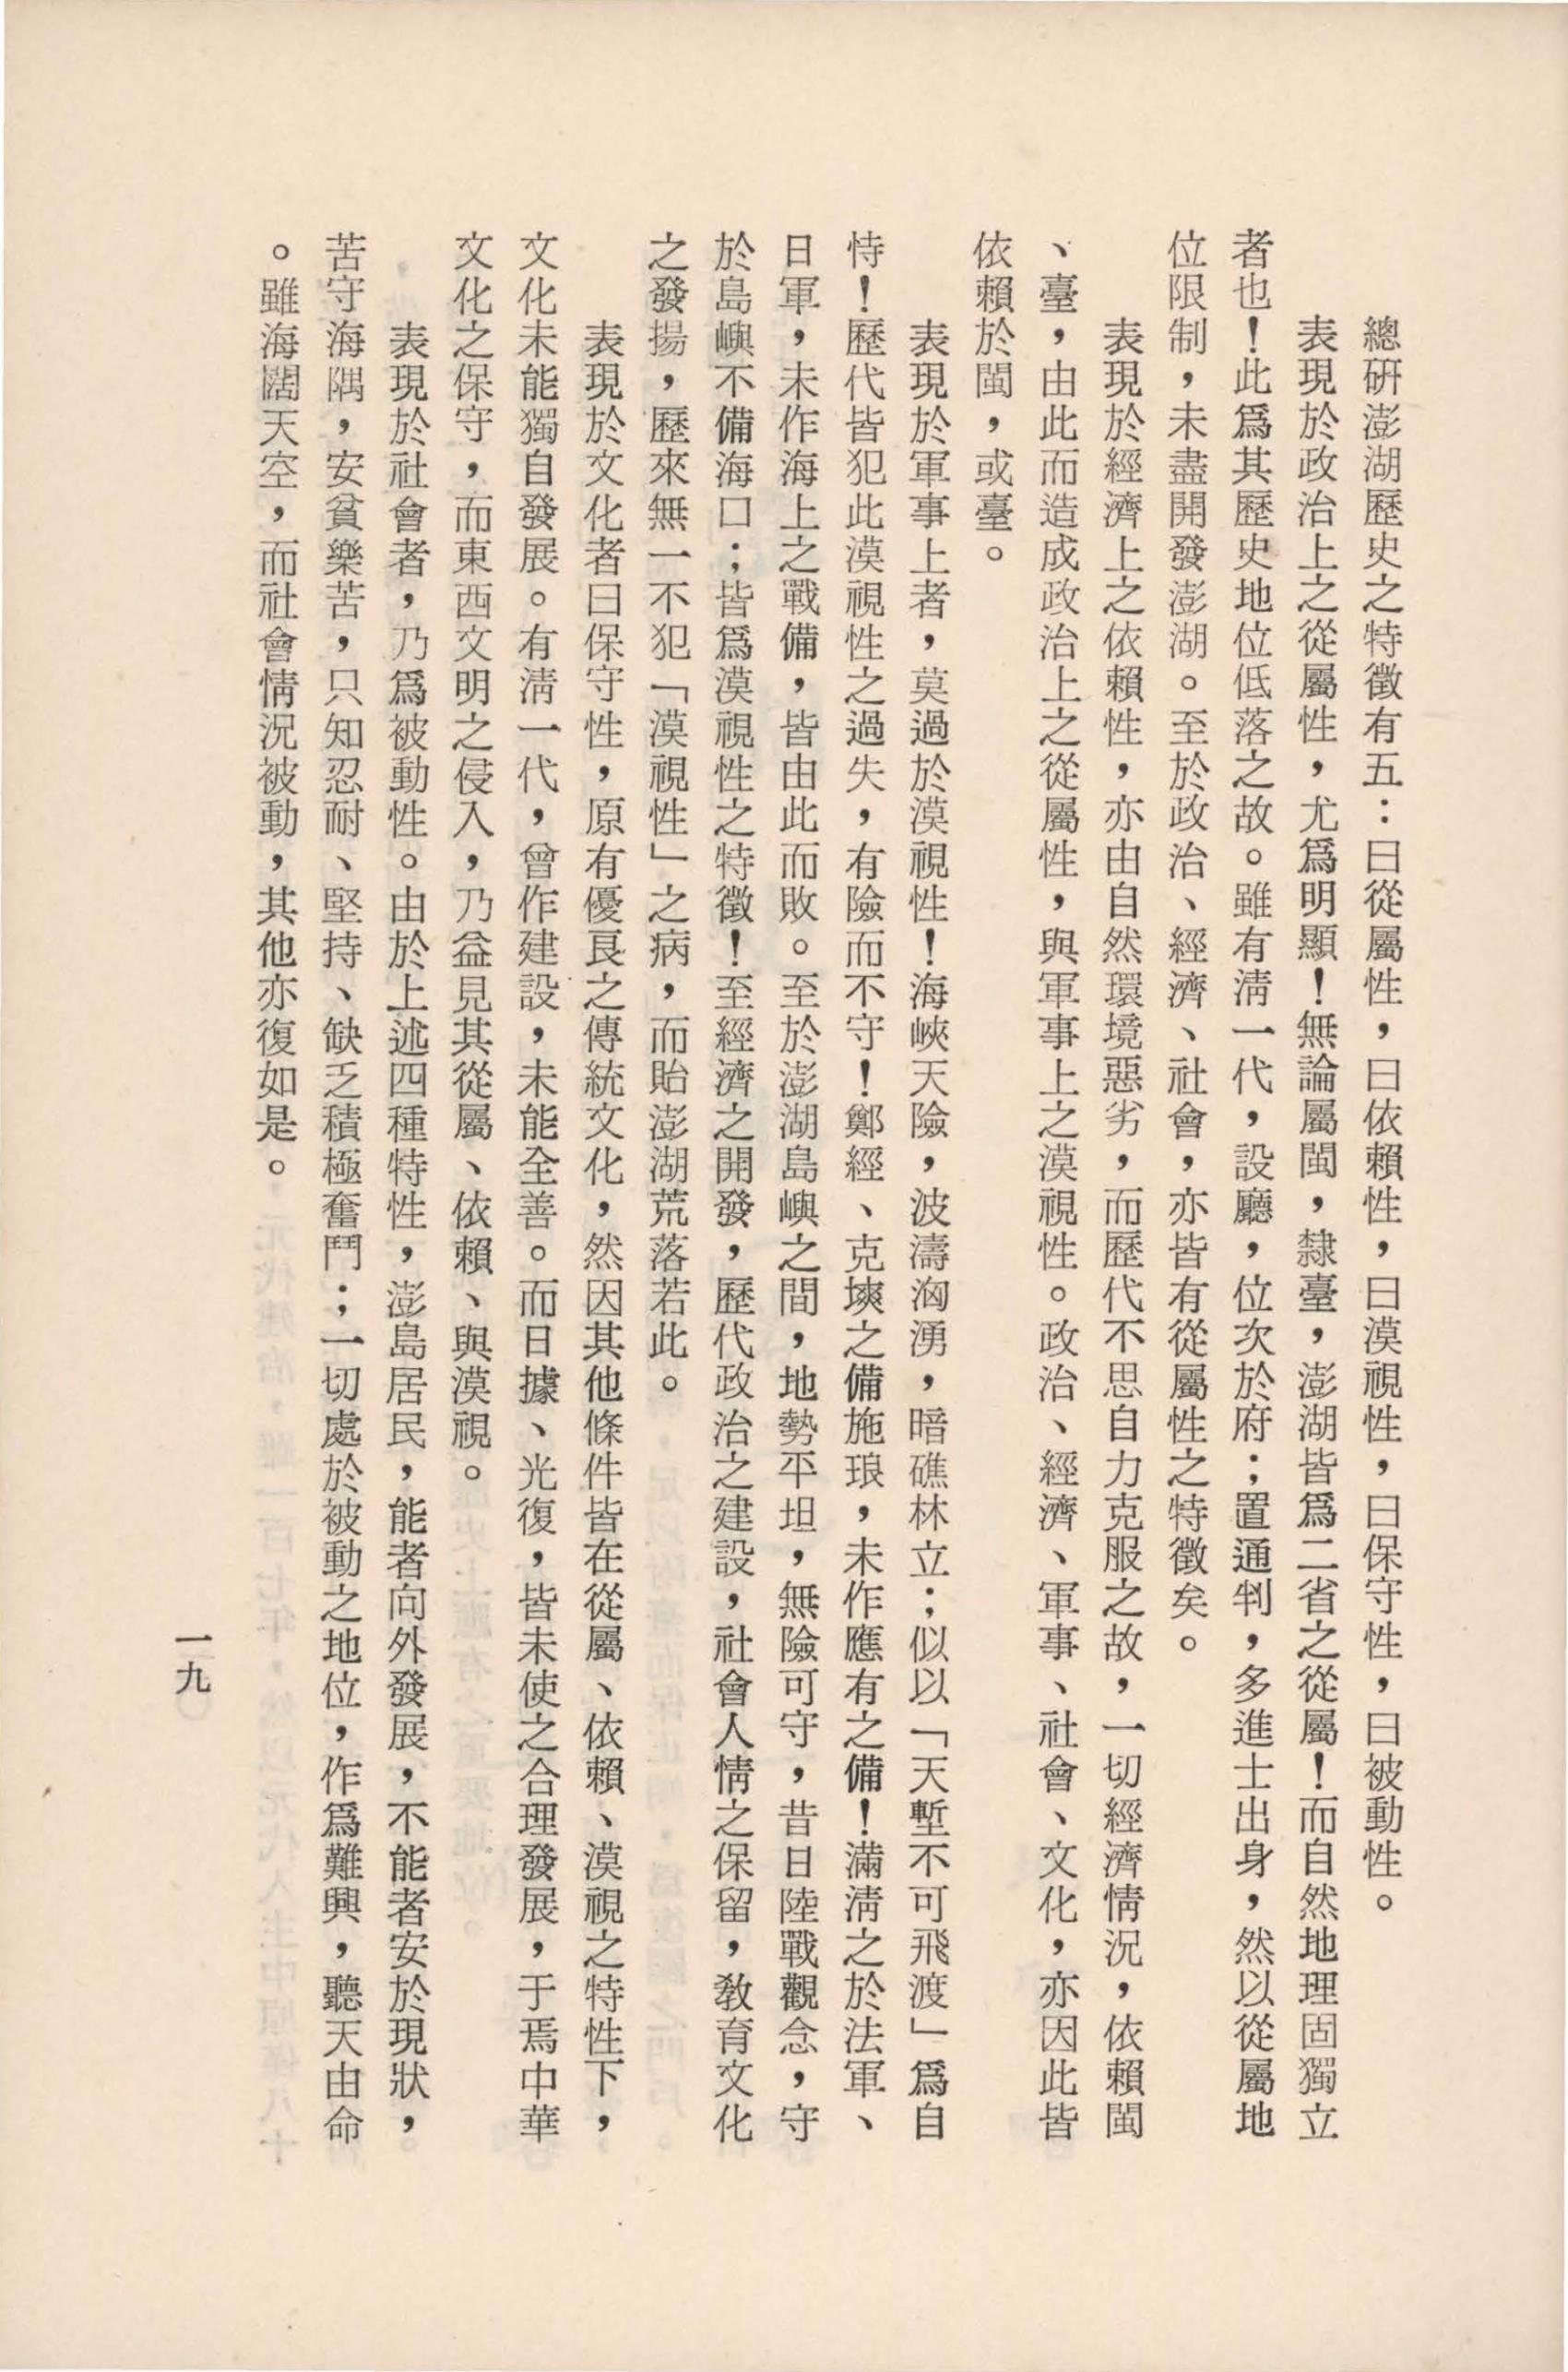 總硏澎湖歷史之特徵有五：曰從屬性，曰依賴性，曰漠視性，曰保守性，曰被動性。
表現於政治上之從屬性，尤爲明顯！無論屬閩，隸臺，澎湖皆爲二省之從屬！而自然地理固獨立
者也！此爲其歷史地位低落之故。雖有淸一代，設廳，位次於府；置通判，多進士出身，然以從屬地
位限制，未盡開發澎湖。至於政治、經濟、社會，亦皆有從屬性之特徵矣。
表現於經濟上之依賴性，亦由自然環境惡劣，而歷代不思自力克服之故，一切經濟情況，依賴閩
、臺，由此而造成政治上之從屬性，與軍事上之漠視性。政治、經濟、軍事、社會、文化，亦因此皆
依賴於閩，或臺。
表現於軍事上者，莫過於漠視性！海峽天險，波濤洶湧，暗礁林立；似以「天塹不可飛渡」爲自
恃！歷代皆犯此漠視性之過失，有險而不守！鄭經、克塽之備施琅，未作應有之備！滿淸之於法軍、
日軍，未作海上之戰備，皆由此而敗。至於澎湖島嶼之間，地勢平坦，無險可守，昔日陸戰觀念，守
於島嶼不備海口；皆爲漠視性之特徵！至經濟之開發，歷代政治之建設，社會人情之保留，教育文化
之發揚，歷來無一不犯「漠視性」之病，而貽澎湖荒落若此。
表現於文化者曰保守性，原有優良之傳統文化，然因其他條件皆在從屬、依賴、漠視之特性下，
文化未能獨自發展。有淸一代，曾作建設，未能全善。而日據、光復，皆未使之合理發展，于焉中華
文化之保守，而東西文明之侵入，乃益見其從屬、依賴、與漠視。
表現於社會者，乃爲被動性。由於上述四種特性，澎島居民，能者向外發展，不能者安於現狀，
苦守海隅，安貧樂苦，只知忍耐、堅持、缺乏積極奮鬥；一切處於被動之地位，作爲難興，聽天由命
。雖海闊天空，而社會情況被動，其他亦復如是。
一九